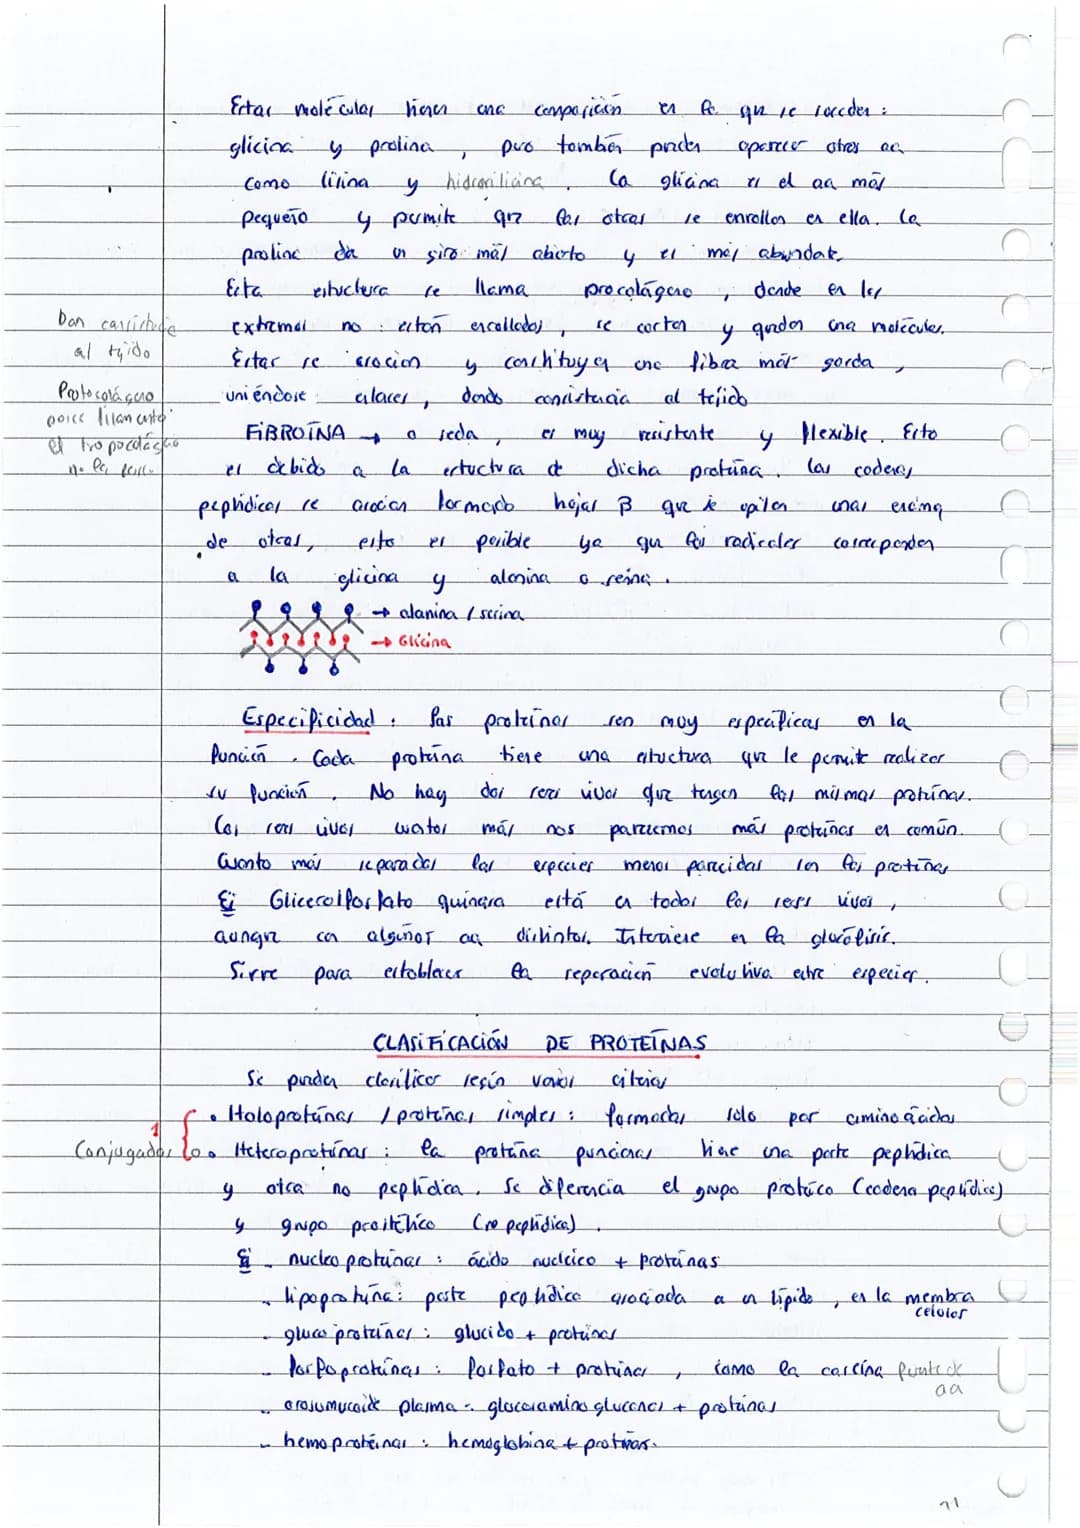 Estas moléculas tienen una composición en la que se suceden :
glicina y prolina, pero también pueden aparecer otros aa
como lisina y hidroxilicina. La glicina es el aa más
pequeño y permite que las otras se enrollen en ella. La
prolina da un giro más abierto y es más abundate.
Esta estructura se llama procolágeno, donde en los
extremos no están enrollados, se cortan y quedan una moléculas.
Estas se asocian y constituyen una fibra más gorda,
uniéndose enlaces, dando consistencia al tejido
Dan consistencia
al tejido
Protocolágeno
posee filamento
el tropocolágeno
no los
FIBROÍNA → o seda, es muy resistente y flexible. Esto
es debido a la estructura de dicha proteína. Las cadenas
peptídicas se asocian formando hojas β que se apilan unas encima
de otras, esto es posible ya que los radicales corresponden
a la glicina y alanina o serina.
→ alanina / serina
→ Glicina
Especificidad : las proteínas son muy específicas en la
función. Cada proteína tiene una estuctura que le permite realizar
su función. No hay dos seres vivos que tengan las mismas proteínas.
Los seres vivos más nos parecemos más proteínas en común.
Cuanto más separadas las especies menos parecidas son las proteínas
Ej Glicerolfosfato quinasa está en todos los seres vivos,
aunque con algunos aa distintos. Interviene en la glucólisis.
Sirve para establecer la separación evolutiva entre especies.
CLASIFICACIÓN DE PROTEÍNAS
Se pueden clasificar según varios citerios
• Holoproteínas / proteínas simples : formadas sólo por aminoácidos
Conjugadas • Heteroproteínas : la proteína tiene una parte peptídica
y otra no peptídica. Se diferencia el grupo proteico (cadena peptídica)
y grupo prostético (no peptídica).
Ej - nucleoproteínas : ácido nucleico + proteínas
- lipoproteína : parte peptídica asociada a un lípido, en la membra
celular
- glucoproteínas : glucido + proteínas
- fosfoproteínas : fosfato + proteínas, como la caseína fuente de
aa
- orosumucoide plasma -. + proteínas
- hemoproteínas : hemoglobina + proteínas.
71